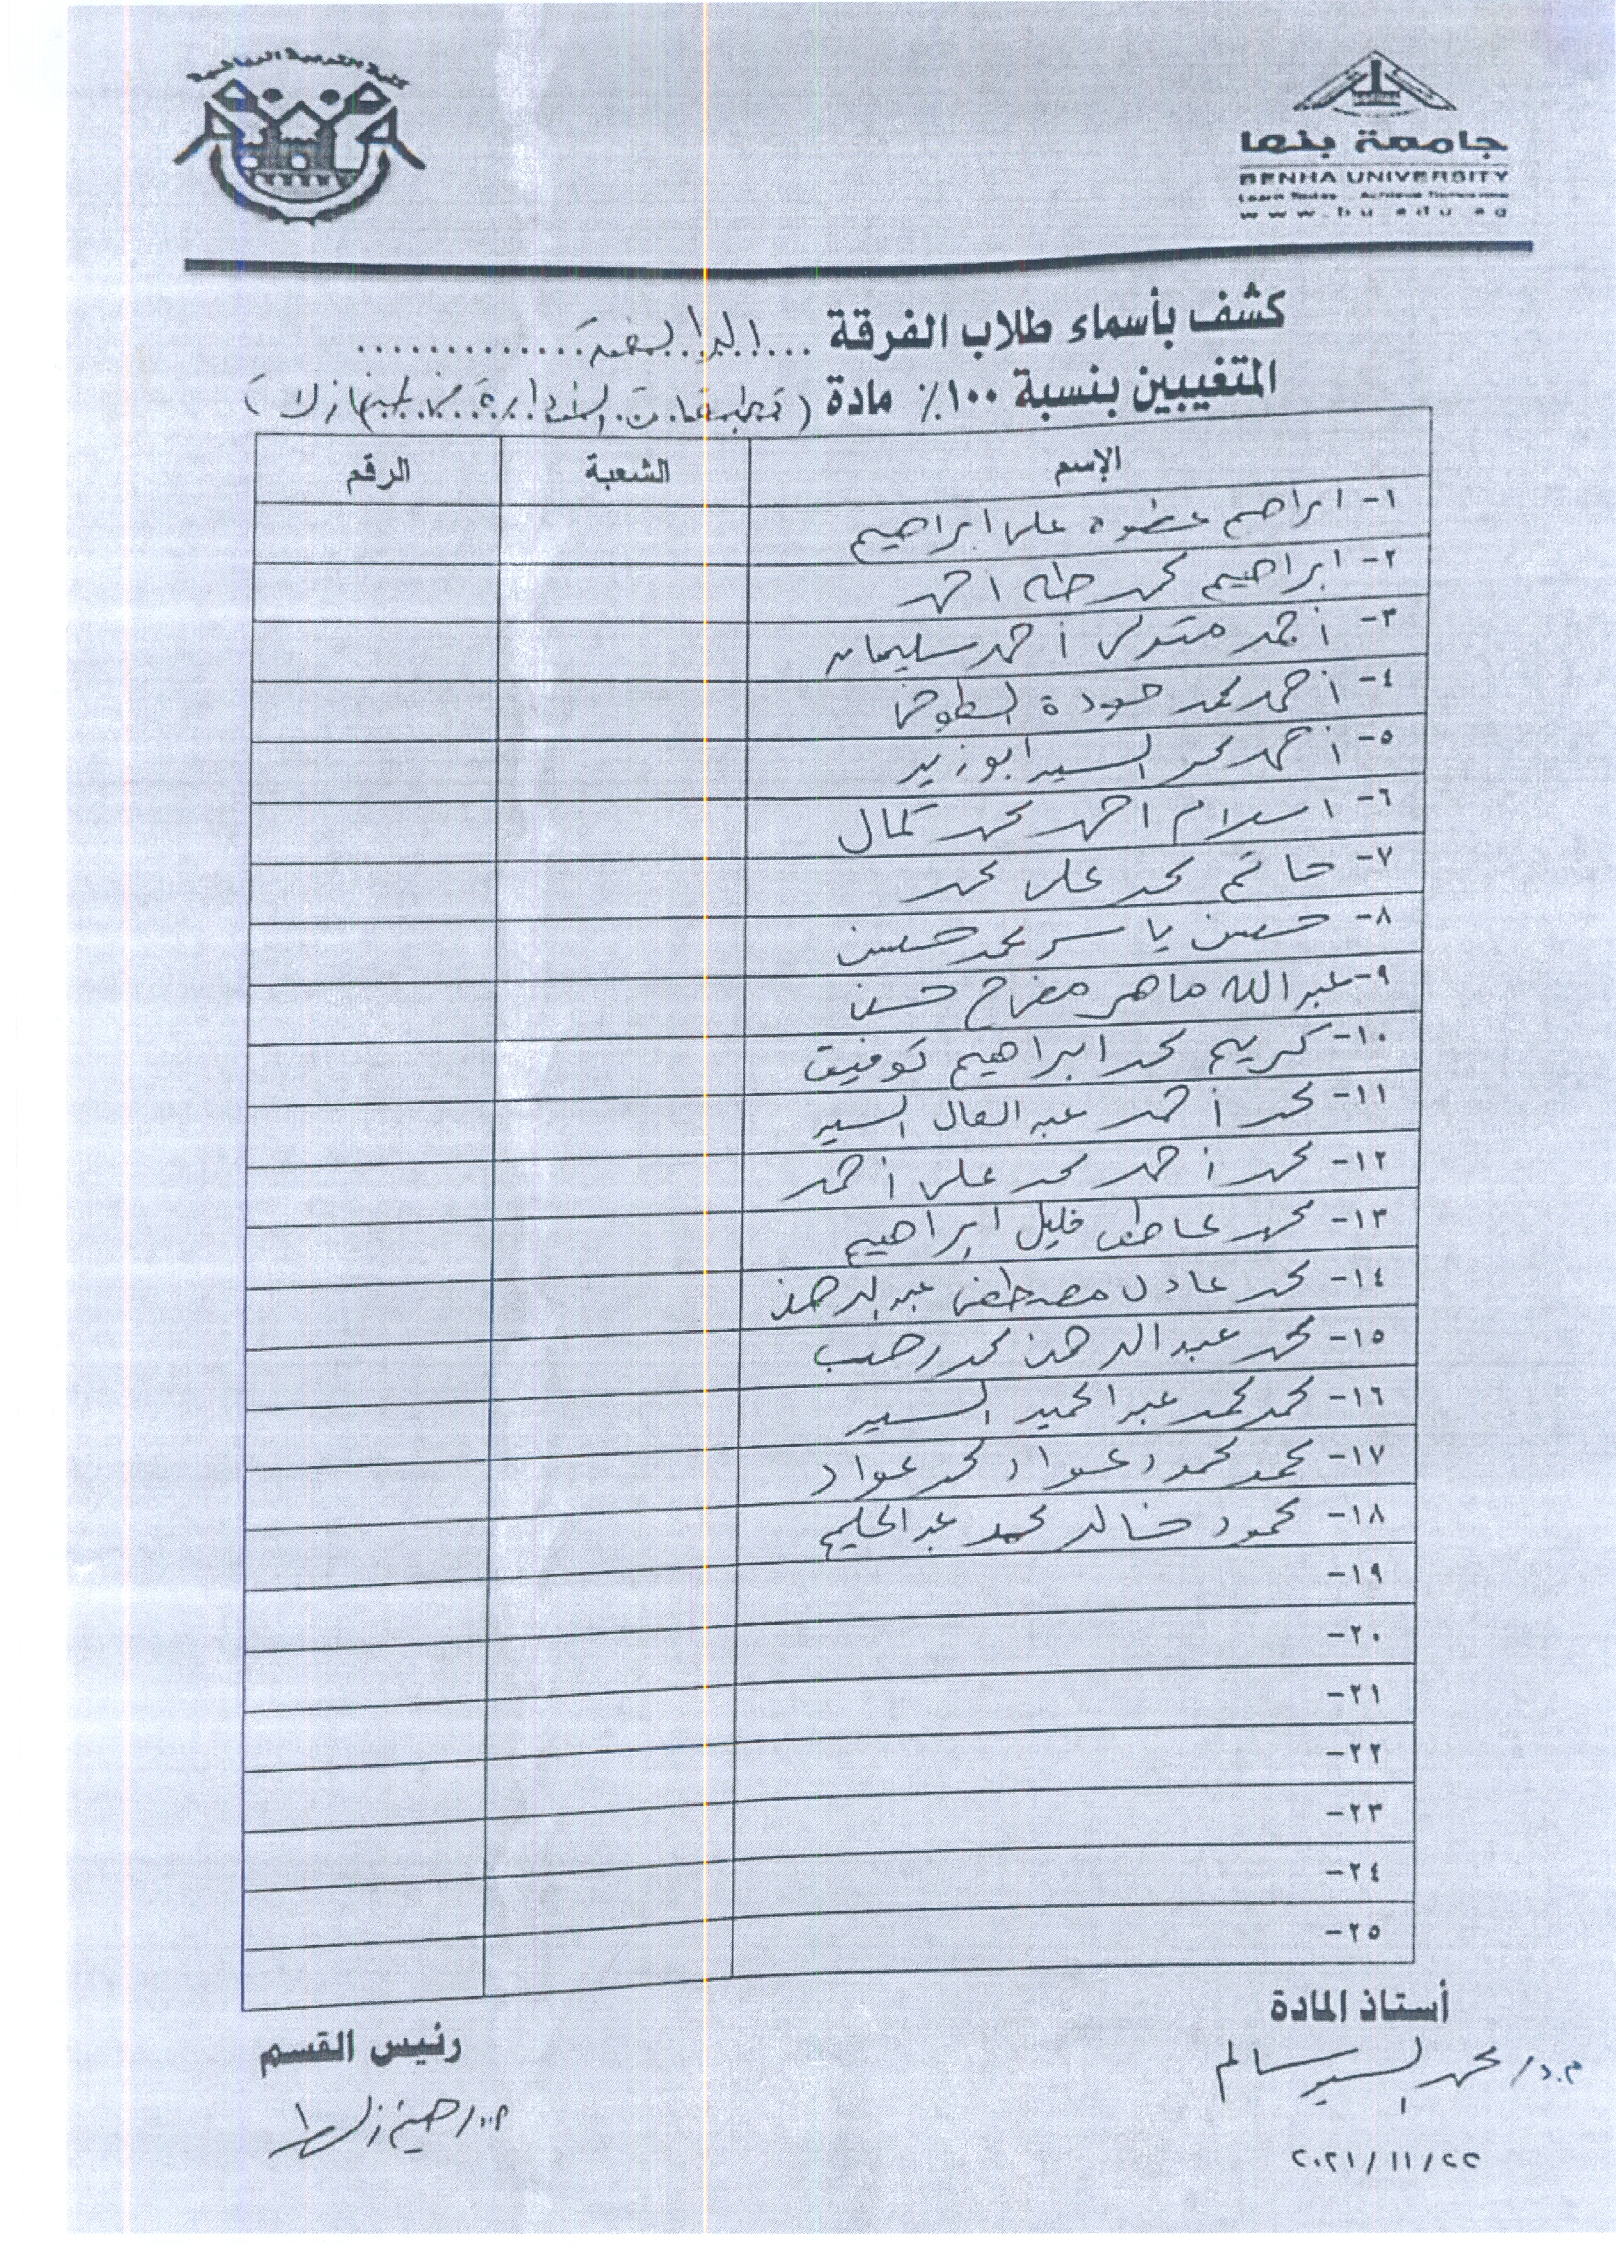 كلية التربية الرياضية
جامعة بنها
BENHA UNIVERSITY
www.bu.edu.eg
كشف بأسماء طلاب الفرقة ...الرابعة............
المتغيبين بنسبة ١٠٠٪ مادة (تطبيقات
الإسم الشعبة الرقم
١- ابراهيم علي ابراهيم
٢- ابراهيم محمد طه احمد
٣- أحمد متولي أحمد سليمان
٤- أحمد محمد حمودة الطوخي
٥- أحمد محمد السيد ابوزيد
٦- اسلام احمد محمد كمال
٧- حاتم محمد علي محمد
٨- حسن ياسر محمد حسن
٩- عبدالله ماهر حسن
١٠- كريم محمد ابراهيم توفيق
١١- محمد أحمد عبدالعال السيد
١٢- محمد أحمد محمد علي أحمد
١٣- محمد عاطف خليل ابراهيم
١٤- محمد عادل مصطفى عبدالرحمن
١٥- محمد عبدالرحمن محمد رجب
١٦- محمد محمد عبدالحميد السيد
١٧- محمد محمود عواد محمد عواد
١٨- محمود خالد محمد عبدالحليم
١٩-
٢٠-
٢١-
٢٢-
٢٣-
٢٤-
٢٥-
أستاذ المادة
رئيس القسم
م.د/ محمد السيد سالم
٢٠٢١/١١/٢٢